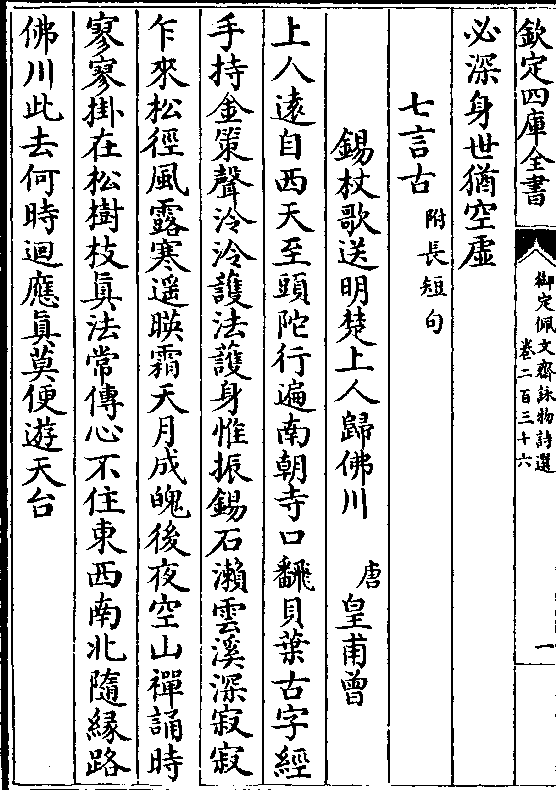 欽定四庫全書
御定佩文齋詠物詩選
卷二百三十六
一
必深身世猶空虛
七言古附長短句
錫杖歌送明楚上人歸佛川 唐皇甫曾
上人遠自西天至頭陀行遍南朝寺口翻貝葉古字經
手持金策聲泠泠護法護身惟振錫石瀨雲溪深寂寂
乍來松徑風露寒遥暎霜天月成魄後夜空山禪誦時
寥寥掛在松樹枝真法常傳心不住東西南北隨緣路
佛川此去何時迴應真莫便遊天台